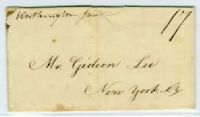 Worthington June
17
Mr. Gideon Lee
New York Ny